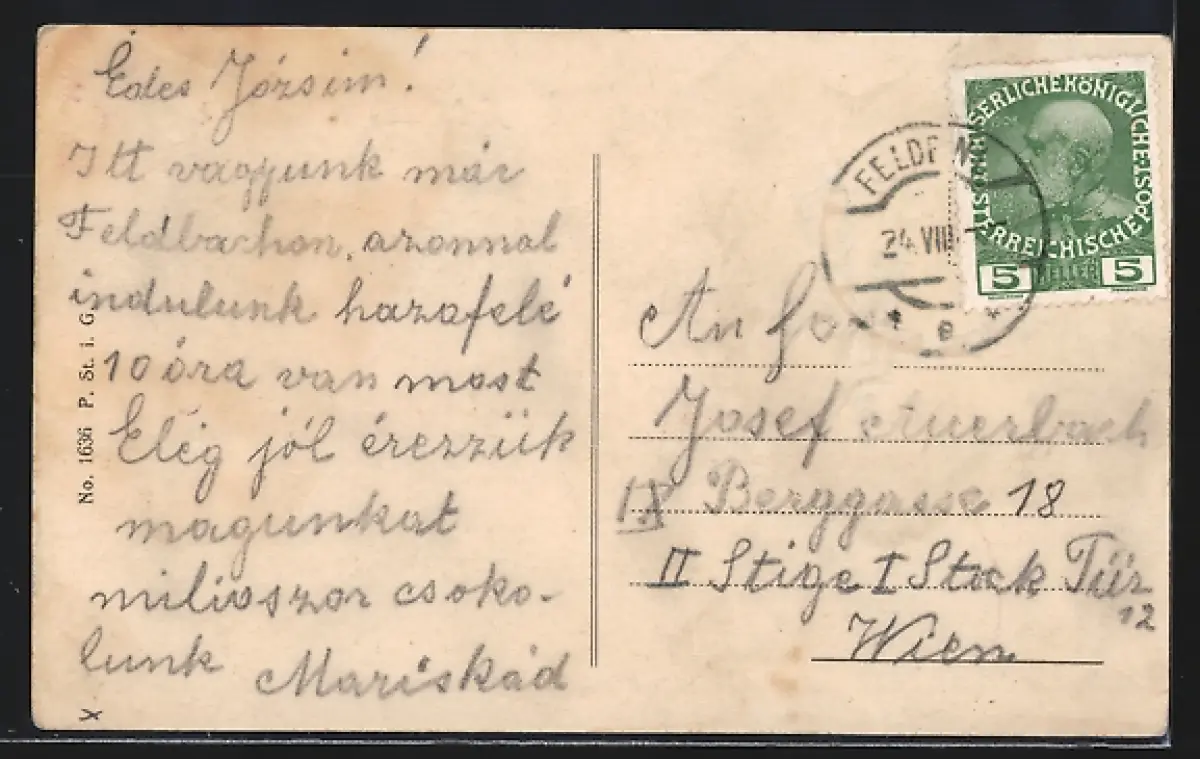 Édes Józsim!
Itt vagyunk már
Feldbachon, azonnal
indulunk hazafelé
10 óra van most
Elég jól érezzük
magunkat
milioszor csoko-
lunk Mariskád
No. 1636 P. St. i. G.
X
KAISERLICHEKÖNIGLICHE
ÖSTERREICHISCHEPOST
5 HELLER 5
24 VIII
An
Josef Auerbach
IX Berggasse 18
II Stige I Stock Tür
12
Wien